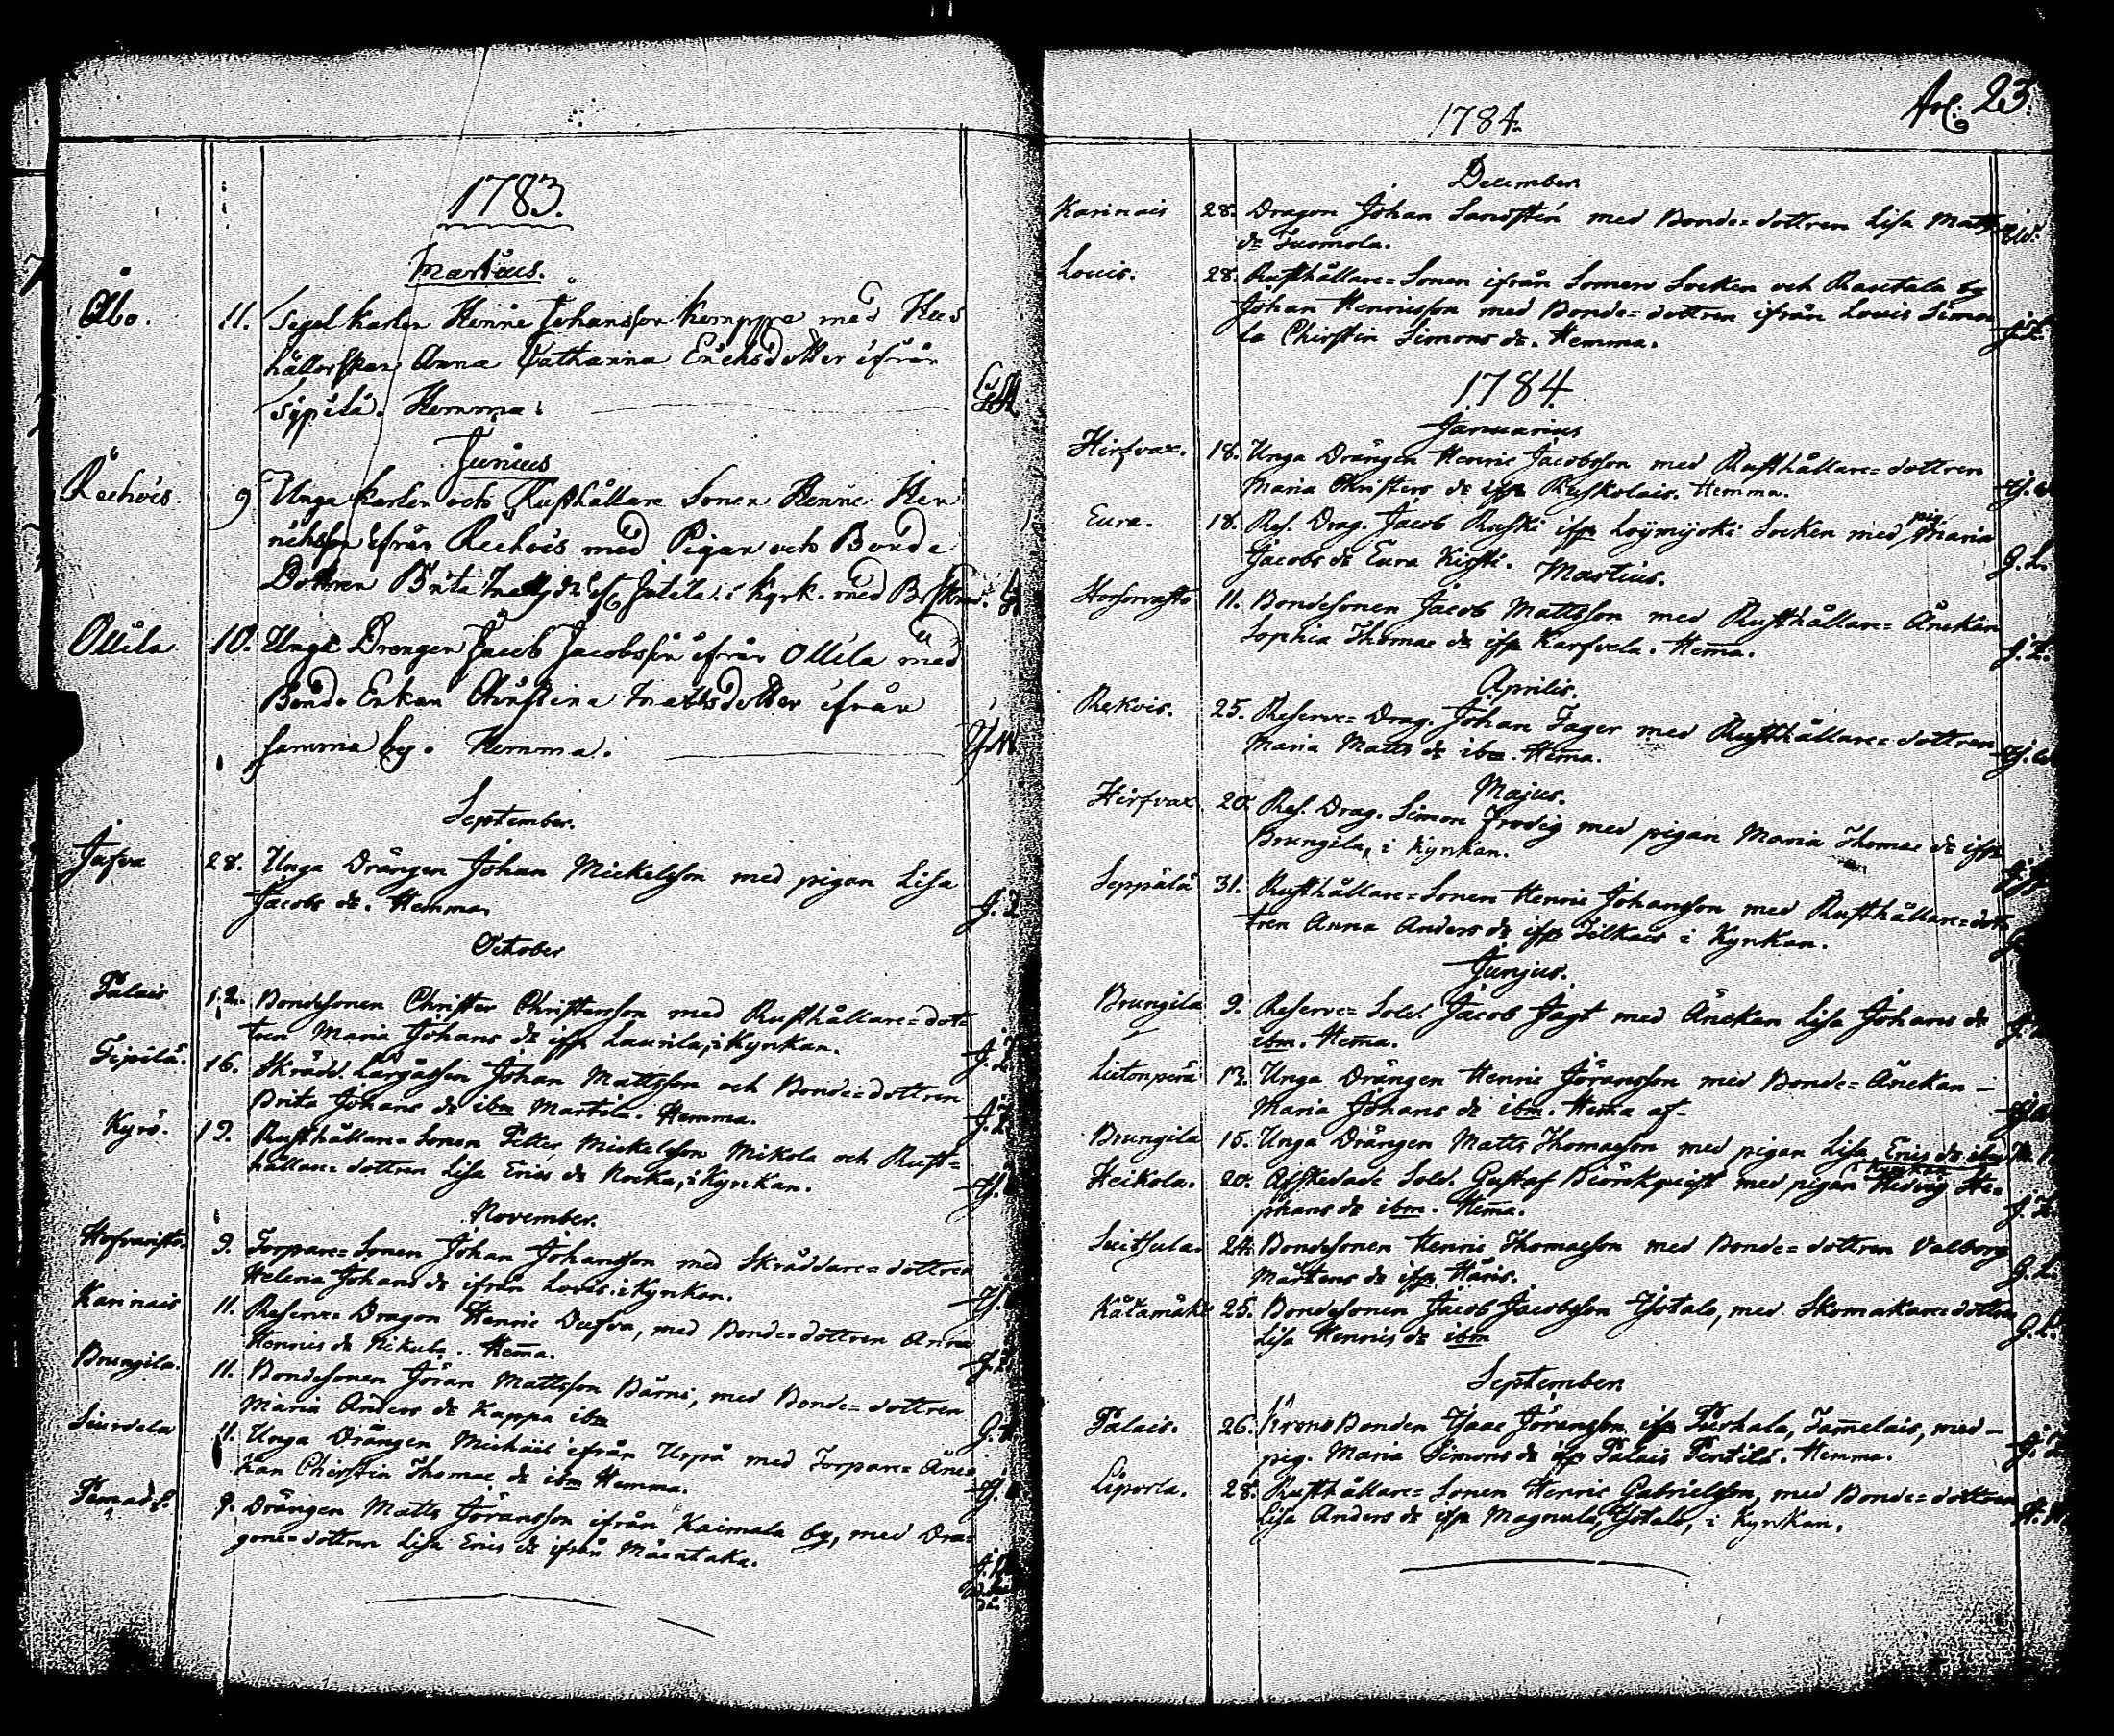 1783.
Martius.
Åbo. 11. Segel karlen Henric Johansson Kemppe med Hus
hållerskan Anna Catharina Erichsdotter ifrån
Sippilä. Hemma.
Junius
9 Unga karlen och Rusthållare Sonen Henric Hen
richsson ifrån med Pigan och Bonde
Dottren Brita i kyrk. med
Ollila 10. Unge Drengen Jacob Jacobsson ifrån Ollila med
Bonde Enkan Christina Mattsdotter ifrån
samma by. Hemma.
September.
28. Unga Drängen Johan Mickelsson med pigan Lisa
Jacobs dr. Hemma. J. L
October
Palais 12. Bondesonen Christer Christersson med Rusthållare=dot=
tren Maria Johans dr ifr Laurila, i Kyrkan. J. L.
16. Skrädd. Johan Mattsson och Bonde=dottren
Brita Johans dr ibm Martila. Hemma. J. L.
Kyrö. 19. Rusthållare=Sonen Petter Mickelsson Mikola och Rust=
hållare=dottren Lisa Erics dr Nocka, i Kyrkan.
November.
9. Torpare=Sonen Johan Johansson med Skräddare=dottren
Helena Johans dr ifrån Louis. i Kyrkan.
Karinais 11. Reserve Dragon Henric Dufva, med Bonde=dottren Anna
Henrics dr Hem̄a. J. L.
Brungila. 11. Bondesonen Jöran Mattsson Bärni, med Bonde=dottren
Maria Anders dr Kappa ibm
11. Unga Drängen Michäel ifrån Urpå med Torpare=Änc=
kan Cherstin Thomae dr ibm Hemma.
9. Drängen Matts Jöransson ifrån Kaimala by, med Dra=
gone=dottren Lisa Erics dr ifrån
Fol. 23.
1784.
December.
Karinais 28. Dragon Johan Sandstén med Bonde=dottren Lisa Matts
dr Tuomola.
Louis. 28. Rusthållare=Sonen ifrån Somero Socken och by
Johan Henricsson med Bonde=dottren ifrån Louis Simo
la Chirstin Simons dr. Hemma.
1784.
Januarius
Hirfvax. 18. Unga Drängen Henric Jacobsson med Rusthållare=dottren
Maria Christers dr ifr Ruskolais. Hemma.
Eura. 18. Res. Drag. Jacob Ruski ifr Loymijoki Socken med pig. Maria
Jacobs dr Eura Kirsti. J. L.
Martius.
11. Bondesonen Jacob Mattsson med Rusthållare=Änckan
Sophia Thomae dr ifr Karfvela. Hem̄a. J. L.
Aprilis.
Rekois. 25. Reserve=Drag. Johan Jager med Rusthållare=dottren
Maria Matts dr ibm. Hem̄a.
Majus.
Hirfvax 20. Res. Drag. Simon Frodig med pigan Maria Thomae dr ifr
Brungila, i Kyrkan.
Seppälä 31. Rusthållare=Sonen Henric Johansson med Rusthållare=dot
tren Anna Anders dr ifr Tilkais i Kyrkan.
Junjus.
Brungila 9. Reserve=Sold. Jacob Jagt med Änckan Lisa Johans dr
ibm. Hem̄a.
Liitonperä 13. Unga Drängen Henric Jöransson med Bonde=Änckan –
Maria Johans dr ibm. Hem̄a
Brungila 15. Unga Drängen Matts Thomaeson med pigan Lisa Erics dr ibm
Kyrkan
Heikola. 20. Afskedade Sold. Gustaf Biörckqvist med pigan Hedvig Ste=
phans dr ibm. Hem̄a. J. L.
24. Bondesonen Henric Thomaeson med Bonde=dottren Valborg
Mårtens dr ifr J. L.
25. Bondesonen Jacob Jacobsson Isotalo, med Skomakare=dottren
Lisa Henrics dr ibm J. L.
September
Palais. 26. Krono Bonden Isaac Jöransson ifr med –
pig. Maria Simons dr ifr Palais Pentilä. Hemma.
Liporla. 28. Rusthållare=Sonen Henric Gabrielsson, med Bonde=dottren
Lisa Anders dr ifr Magnula, Isotalo, i Kyrkan.